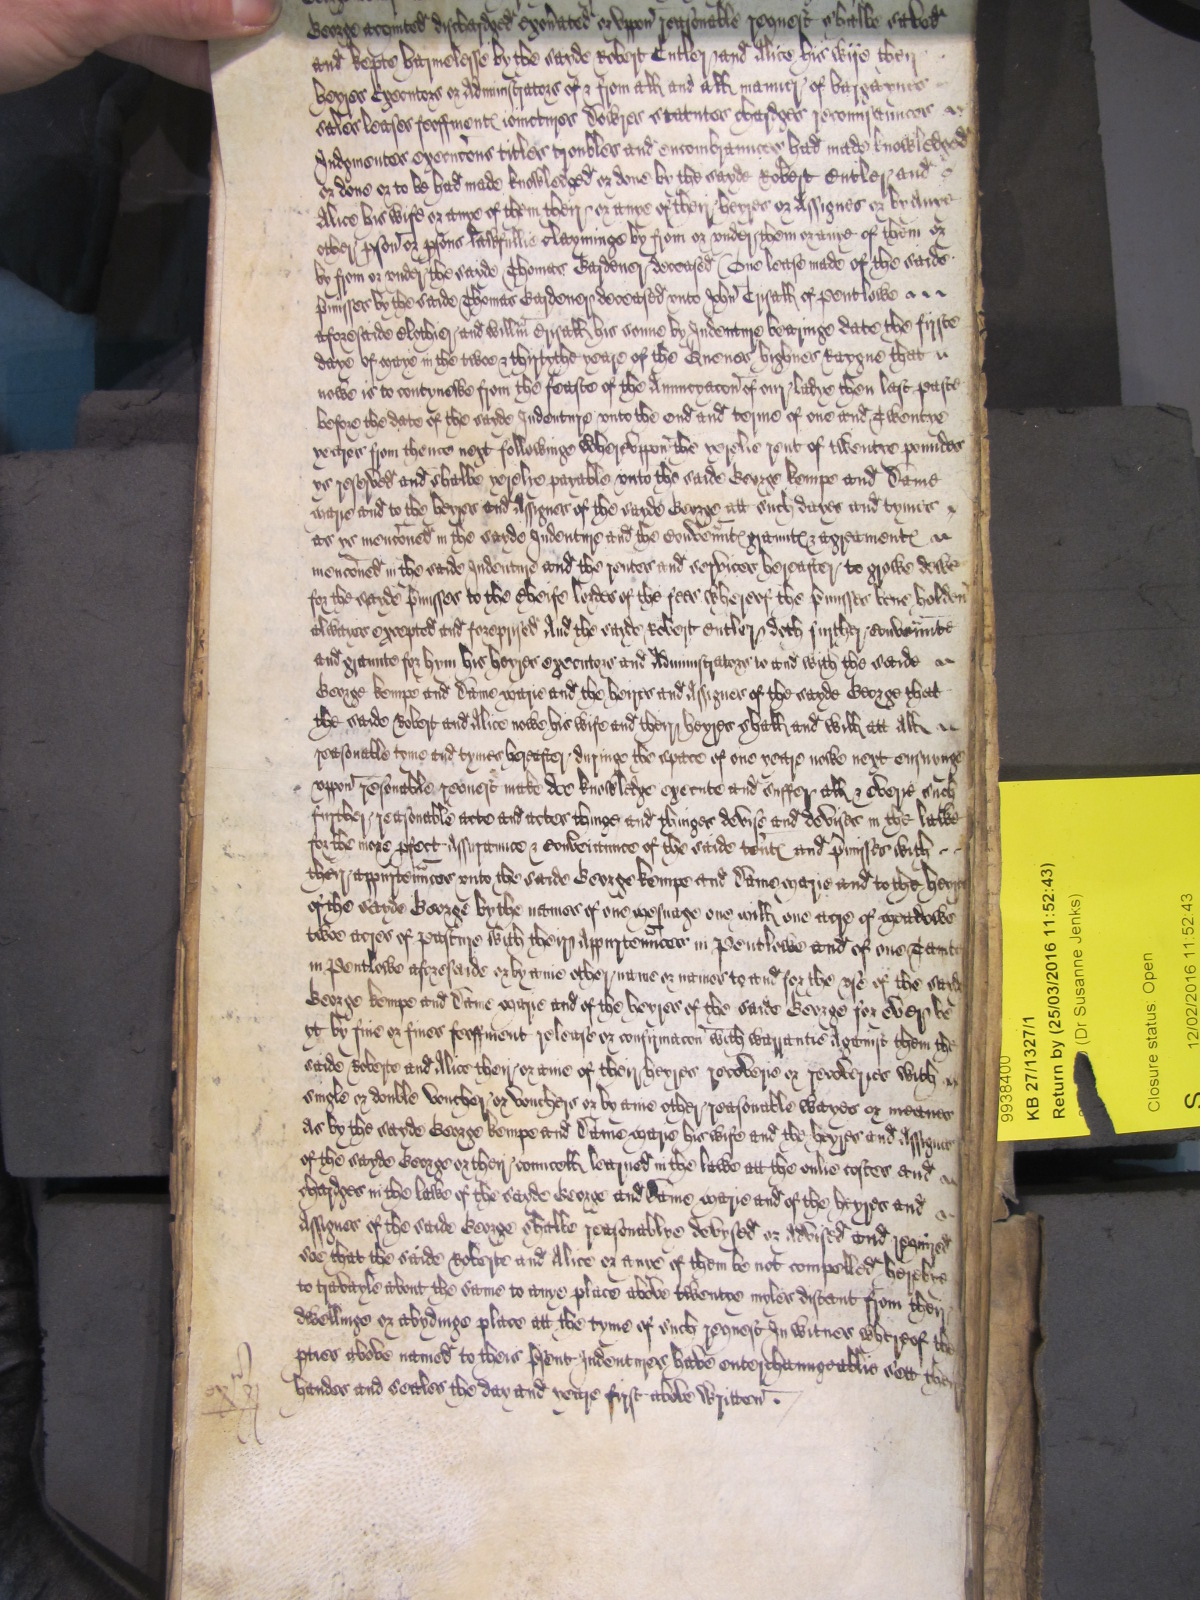 George acquited discharged exonated or uppon reasonable request shalbe saved
and kepte harmelesse by the sayde Robert Cutler and Alice his wife their
heyres executors or Administrators of & from all and all manner of bargaynes
sales leases feoffmentes ioinctures Dowres statutes chardges recognisaunces
Judgmentes execucons titles troubles and encombraunces had made knowledged
or done or to be had made knowledged or done by the sayde Robert Cutler and
Alice his wife or anye of them their or anye of their heyres or Assignes or by Anye
other pson or psons lawfullie claymynge by from or under them or anye of them or
by from or under the sayde Thomas Gardener deceased One lease made of the saide
pmisses by the saide Thomas Gardener deceased unto John Crisall of Pentlowe
aforesaide Clothier and Willm Crisall his sonne by Indenture bearinge date the firste
daye of maye in the twoe & thirtythe yeare of the Quenes highnes Raygne that
nowe is to contynewe from the feaste of the Annunciacon of our ladye then last paste
before the date of the sayde Indenture unto the end and terme of one and Twentye
yeares from thence next followinge Whereuppon the yerelie rent of twentye poundes
ys reserved and shalbe yerelye payable unto the saide George Kempe and Dame
Marie and to the heyres and Assignes of the sayde George att such dayes and tymes
as ys menconed in the sayde Indenture and the Covenntes grauntes & agreamentes
menconed in the saide Indenture and the rentes and services hereafter to growe dewe
for the sayde pmisses to the Cheife lordes of the fees Whereof the pmisses bene holden
alwayes excepted and foreprised And the sayde Robert Cutler doth further covennte
and graunte for hym his heyres executors and Administrators to and with the saide
George Kempe and Dame Marie and the heires and Assignes of the sayde George that
the saide Robert and Alice nowe his wife and their heyres shall and will att All
reasonable tyme and tymes hereafter duringe the space of one yeare nowe next ensuynge
uppon resonable request make doe knowledge execute and suffer all & everie such
further reasonable acte and actes thinge and thinges devise and devises in the lawe
for the more pfect Assuraunce & conveiaunce of the saide tentes and pmisses with
their appurtennces unto the saide George Kempe and Dame Marie and to the heyres
of the sayde George by the names of one mesuage one mill one acre of meadowe
twoe acres of pasture with their Appurtennces in Pentlowe and of one
in Pentlowe aforesaide or by anie other name or names to and for the use of the sayde
George Kempe and Dame Marie and of the heyres of the saide George for ever be
yt by fine or fines feoffment release or confirmacon with warrantie Against them the
saide Roberte and Alice their or anie of their heyres recoverie or recoveries with
single or double Voucher or vouchers or by anie other reasonable wayes or meanes
As by the sayde George Kempe and Dame Marie his wife and the heyres and Assignes
of the sayde George or their councell learned in the lawe att the onlie costes and
chardges in the lawe of the sayde George and Dame Marie and of the heyres and
Assignes of the saide George shalbe reasonablye devysed or Advised and required
soe that the saide Roberte and Alice or anye of them be not compelled hereby
to travayle about the same to anye place above twentye myles distant from their
dwellinge or abydinge place att the tyme of such request In witnes whereof the
pties above named to theis psent Indentures have enterchaungeablie sett their
handes and seales the day and yeare first above written.
9938400
KB 27/1327/1
Return by (25/03/2016 11:52:43)
(Dr Susanne Jenks)
Closure status: Open
12/02/2016 11:52:43
S